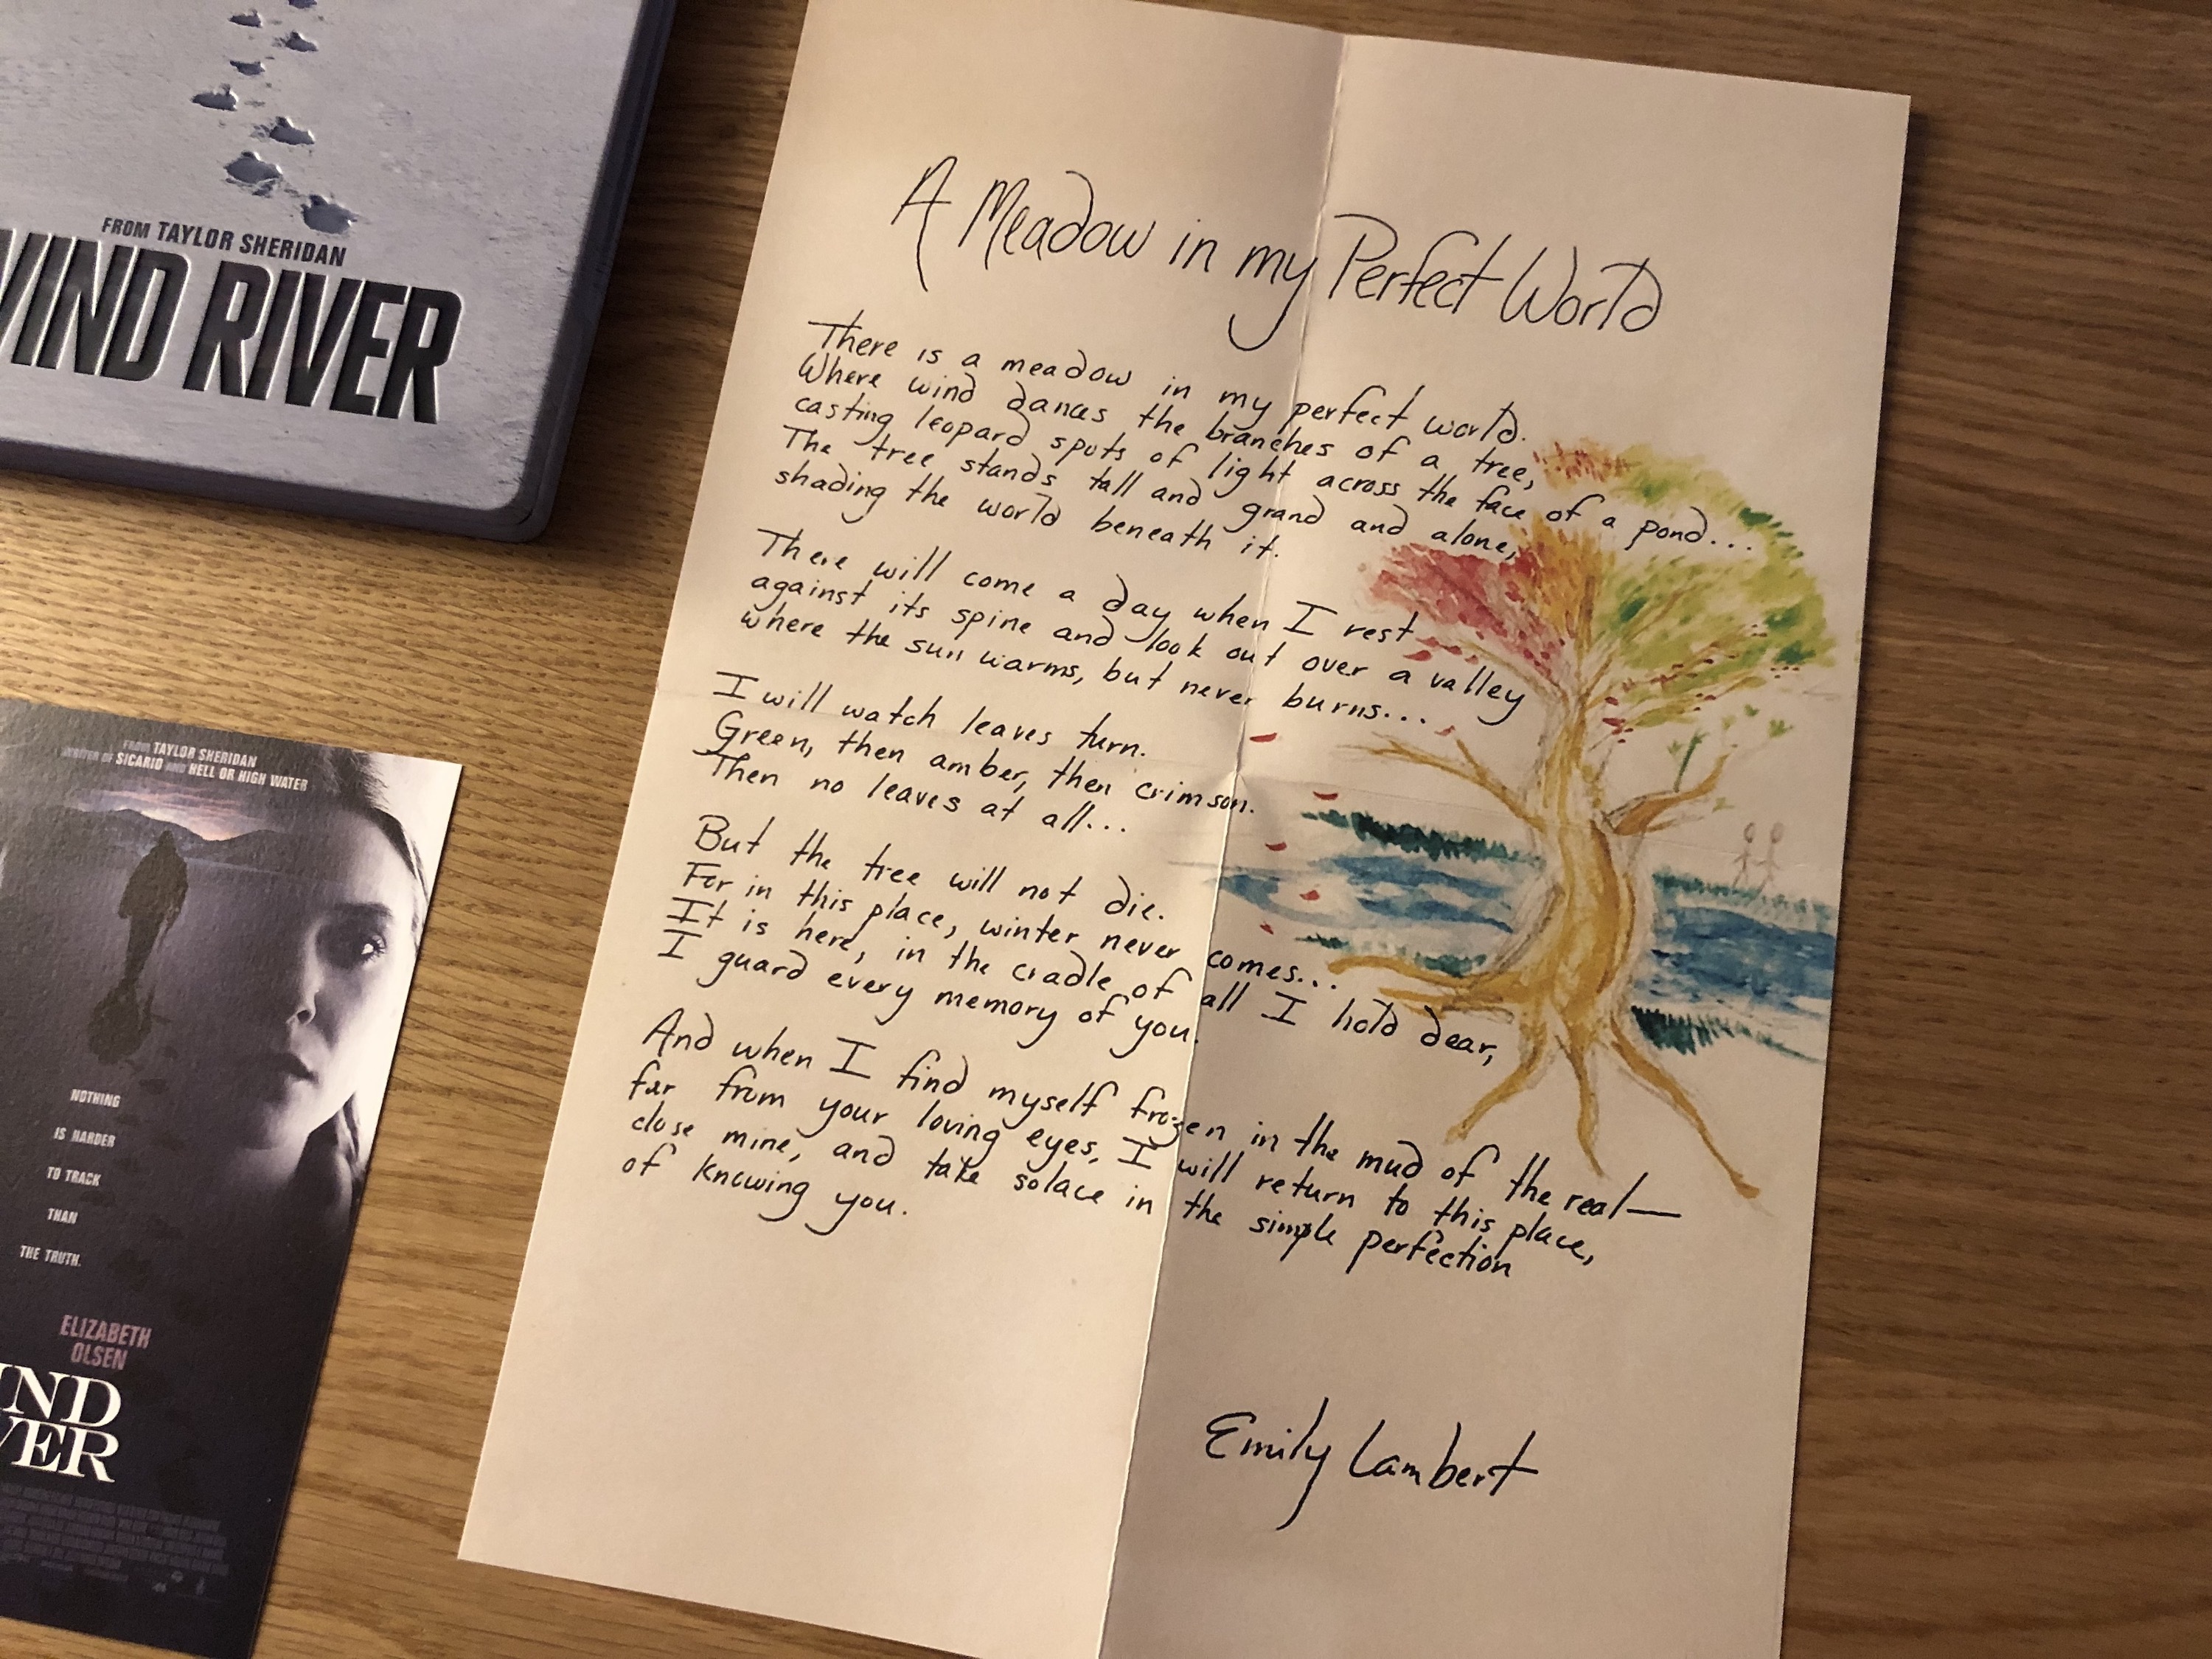 FROM TAYLOR SHERIDAN
WIND RIVER
FROM TAYLOR SHERIDAN
WRITER OF SICARIO AND HELL OR HIGH WATER
NOTHING
IS HARDER
TO TRACK
THAN
THE TRUTH.
ELIZABETH
OLSEN
IND
VER
A Meadow in my Perfect World
There is a meadow in my perfect world.
Where wind dances the branches of a tree,
casting leopard spots of light across the face of a pond...
The tree stands tall and grand and alone,
shading the world beneath it.
There will come a day when I rest
against its spine and look out over a valley
where the sun warms, but never burns...
I will watch leaves turn.
Green, then amber, then crimson.
Then no leaves at all...
But the tree will not die.
For in this place, winter never comes...
It is here, in the cradle of all I hold dear,
I guard every memory of you.
And when I find myself frozen in the mud of the real—
far from your loving eyes, I will return to this place,
close mine, and take solace in the simple perfection
of knowing you.
Emily Lambert